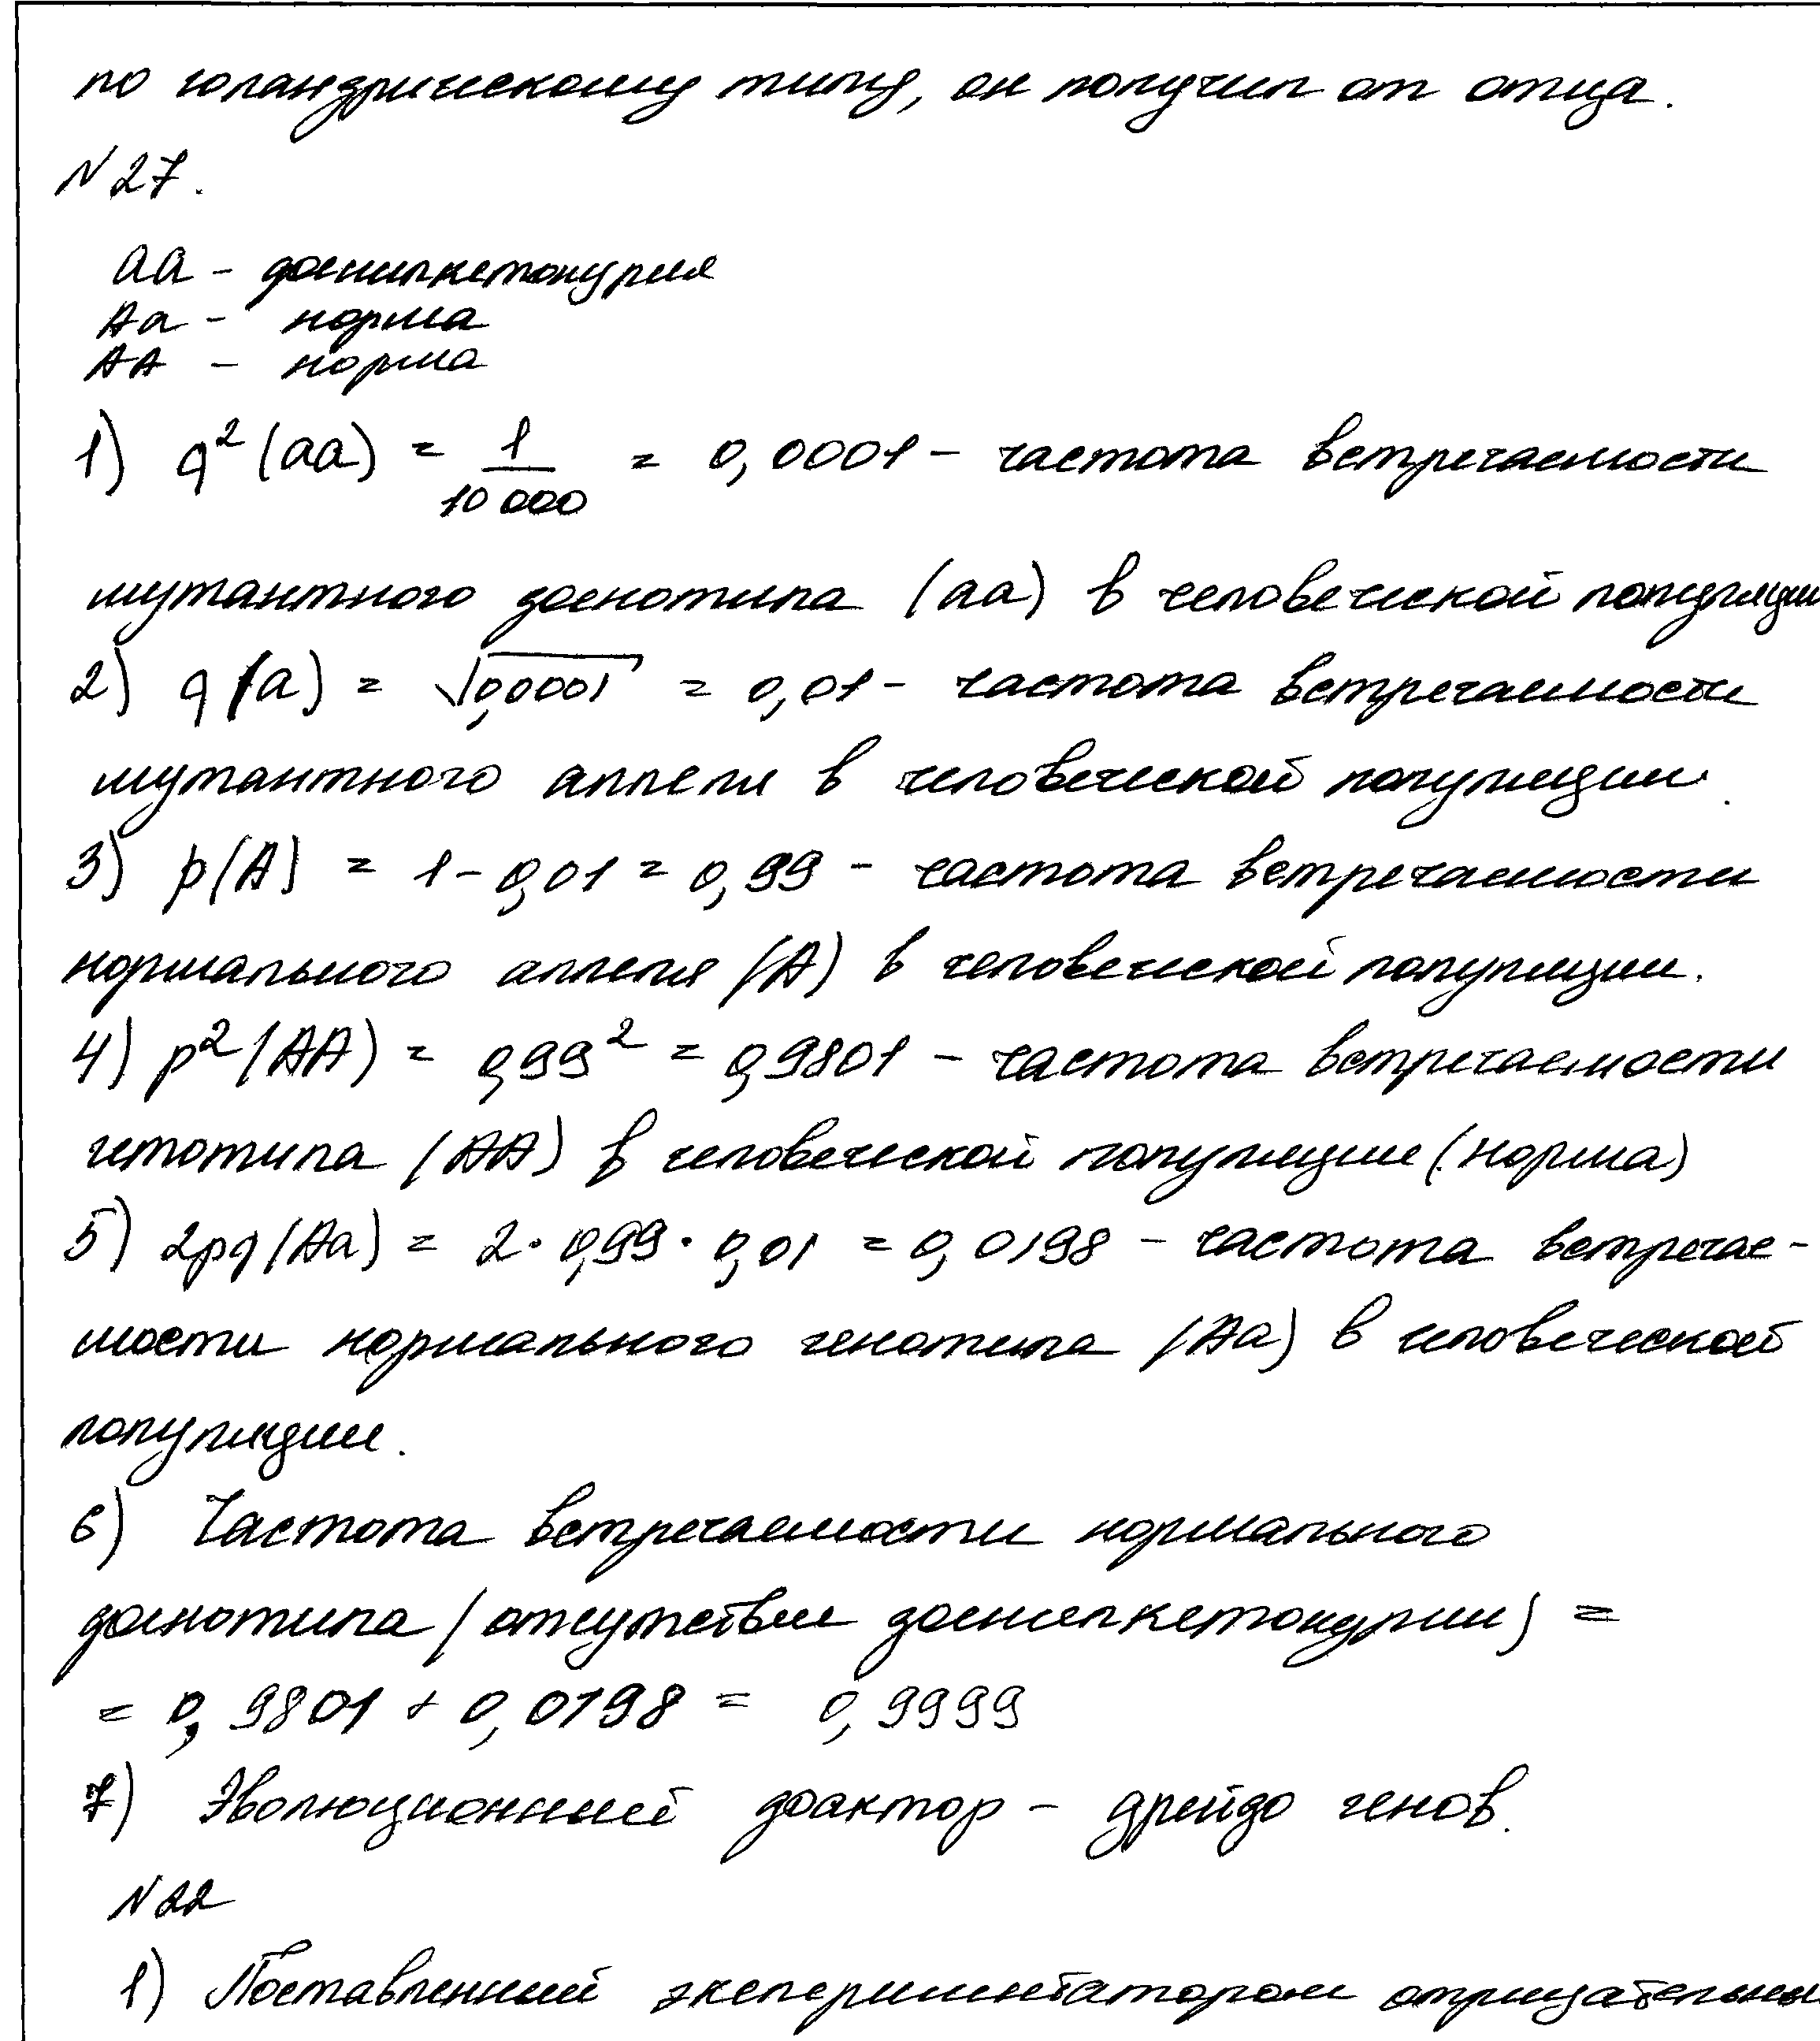 по голандрическому типу, он получил от отца.
N 27.
aa - фенилкетонурия
Aa - норма
AA - норма
1) q² (aa) = 1/10 000 = 0,0001 - частота встречаемости
мутантного фенотипа (aa) в человеческой популяции
2) q (a) = √0,0001 = 0,01 - частота встречаемости
мутантного аллеля в человеческой популяции.
3) p(A) = 1 - 0,01 = 0,99 - частота встречаемости
нормального аллеля (A) в человеческой популяции.
4) p² (AA) = 0,99² = 0,9801 - частота встречаемости
генотипа (AA) в человеческой популяции (норма)
5) 2pq (Aa) = 2 · 0,99 · 0,01 = 0,0198 - частота встречае-
мости нормального генотипа (Aa) в человеческой
популяции.
6) Частота встречаемости нормального
фенотипа (отсутствие фенилкетонурии) =
= 0,9801 + 0,0198 = 0,9999
7) Эволюционный фактор - дрейф генов.
N 22
1) Поставленный экспериментатором отрицательны